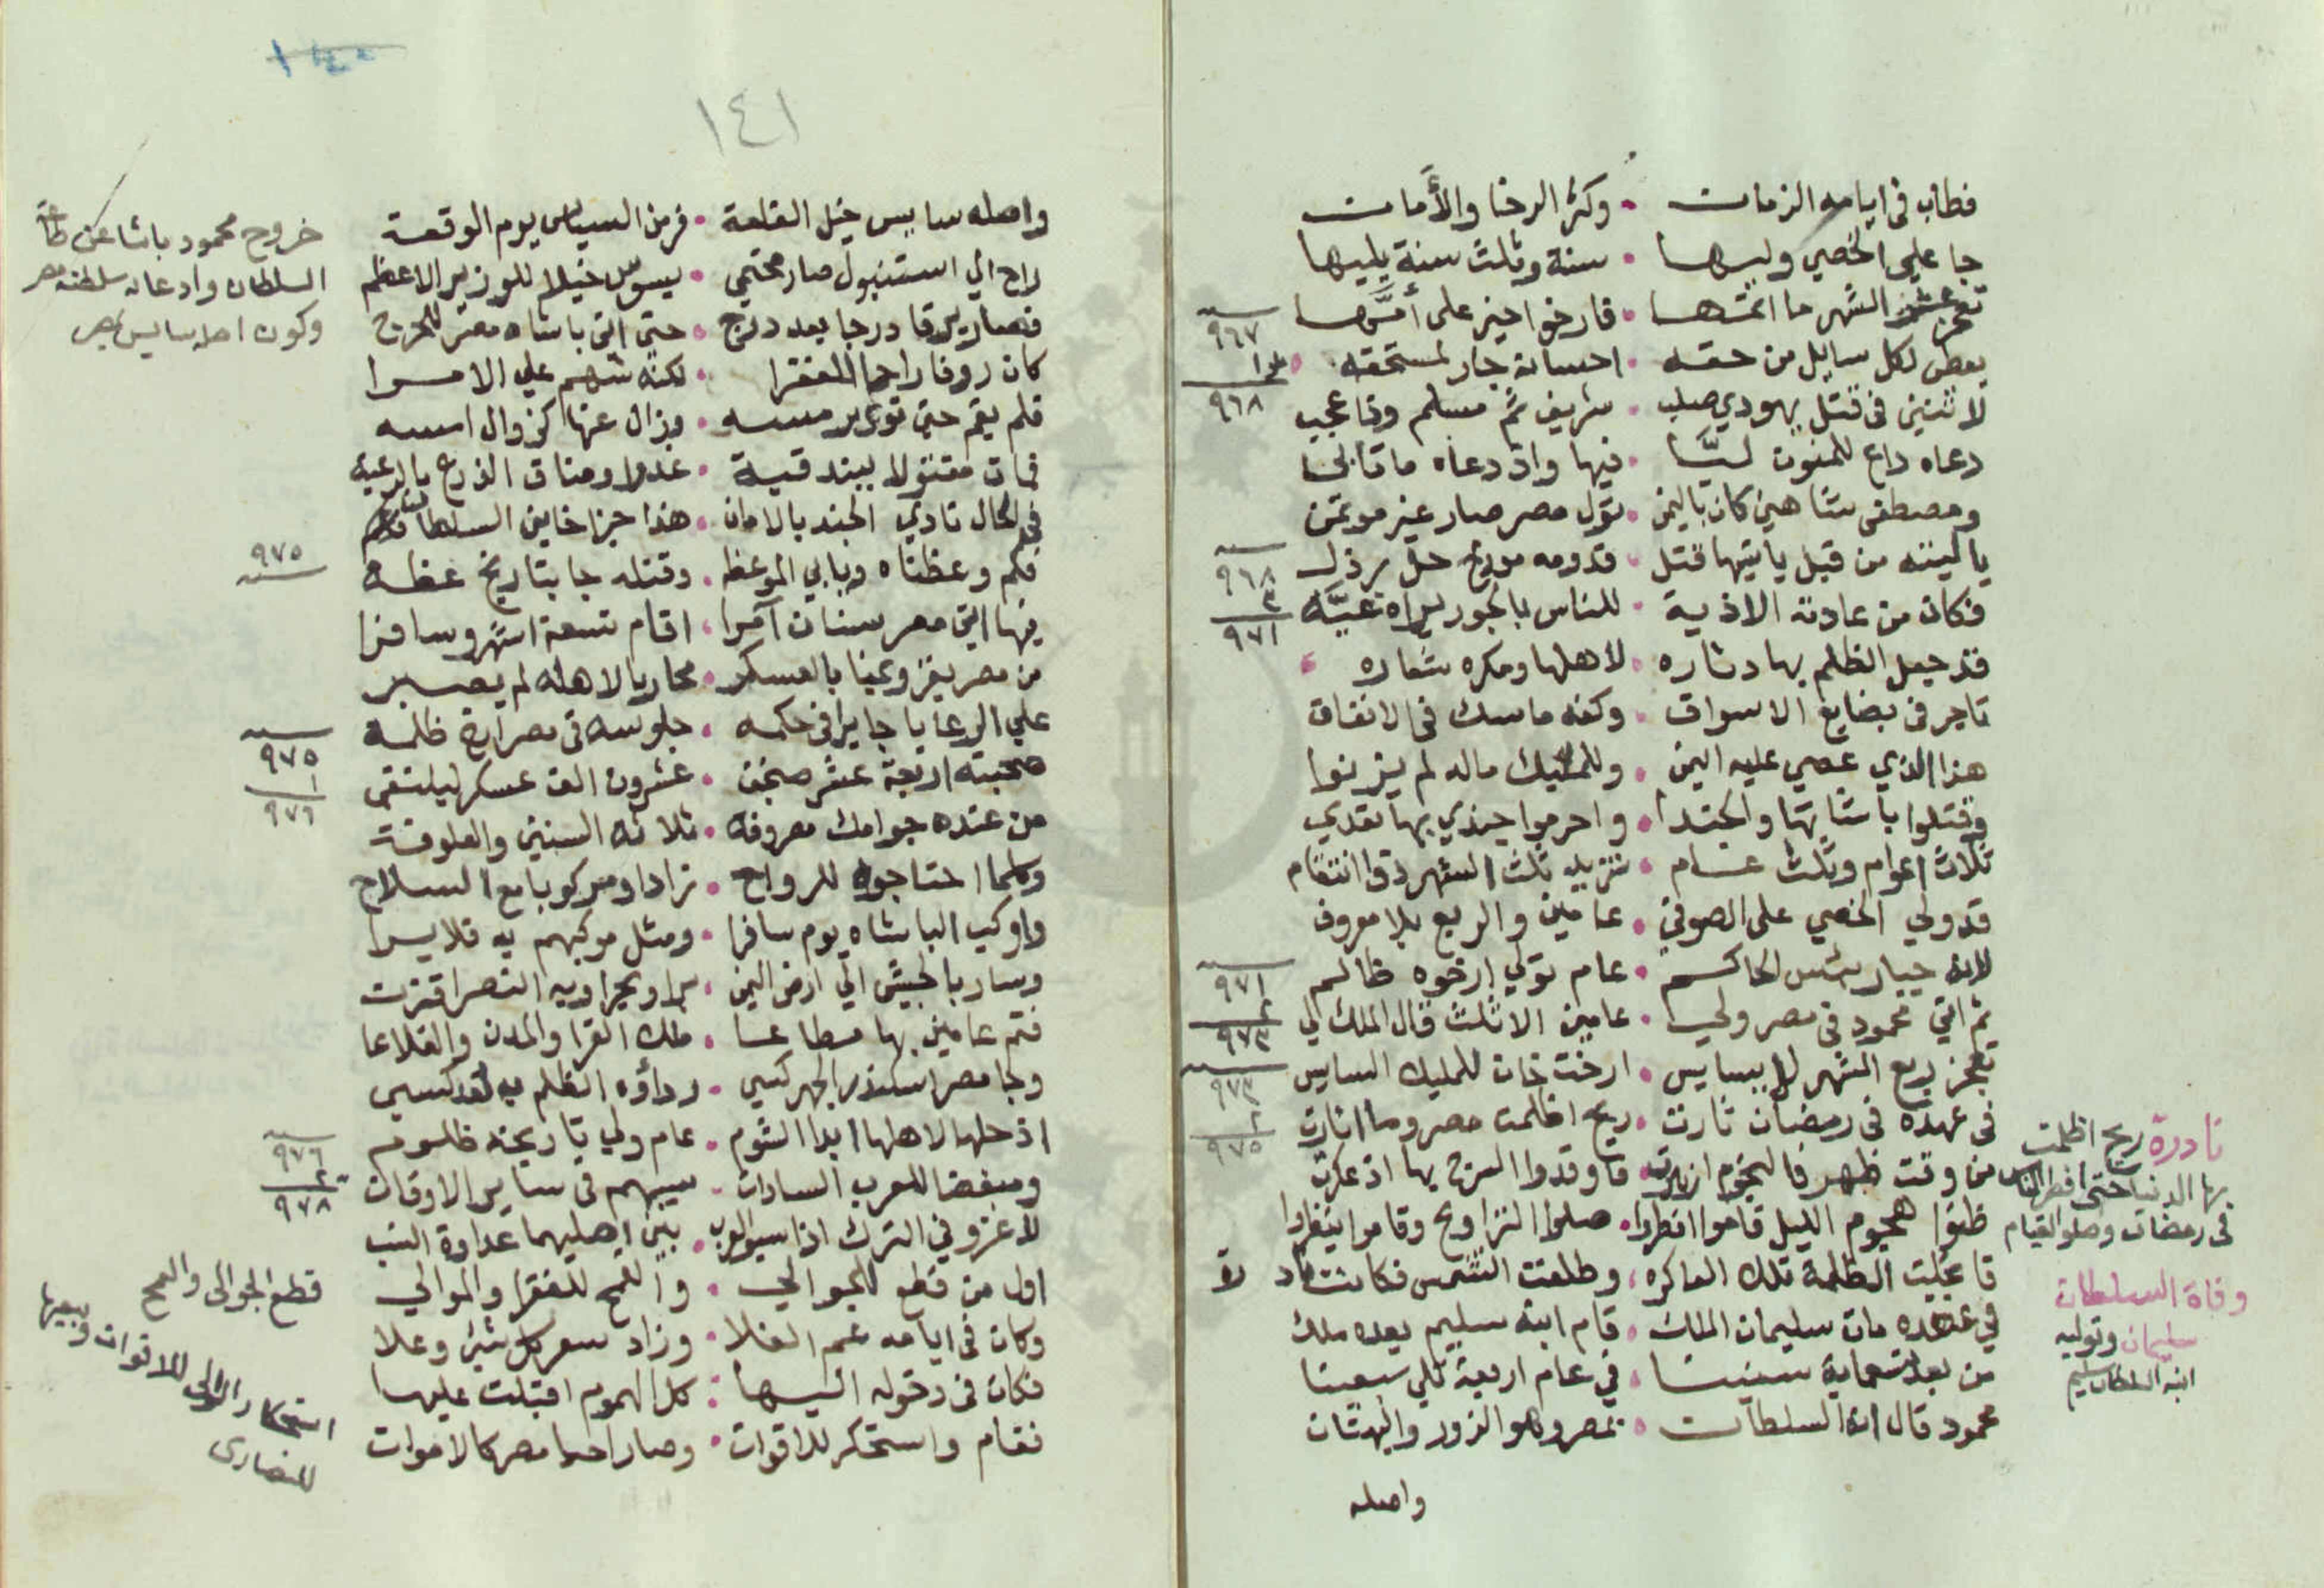 فطاب في ايامه الزمان • وكثر الرخا والأمان
جا علي الخصي وليها • سنة وثلث سنة يليها
الشهر ما اتمها • فارخوا خيز على أمها
٩٦٧
يعطى لكل سايل من حقه • احسانه جار لمستحقه
١
٩٦٨
لاثنين في قتل يهودي صلب • شريف ثم مسلم وذا عجب
دعاه داع للمنون لبا • فيها واذ دعاه ما تابا
ومصطفى شاهين كان باليمن • تول مصر صار غير موتمن
يا ليته من قبل ياتيها قتل • قدومه مورخ حل
٩٦٨
٣
٩٧١
فكان من عادته الاذية • للناس بالجور
قد جعل الظلم بها دثاره • لاهلها ومكره شعاره
تاجر في بضايع الاسواق • وكفه ماسك في الانفاق
هذا الذي عصي عليه اليمن • وللمليك ماله لم يزنوا
وقتلوا باشاتها والجندا • واحرموا جندي بها تعدي
ثلاث اعوام وثلث عام • تزيد ثلث الشهر ذي انتقام
قد ولي الخصي على الصوفي • عامين والربع بلا معروف
لانه جبار بئس الحاكم • عام تولي ارخوه ظالم
٩٧١
٢
٩٧٣
ثم اتي محمود في مصر ولي • عامين الا ثلث قال الملك لي
تعجز ربع الشهر سايس • ارخت خان للمليك السايس
٩٧٣
٢
٩٧٥
في عهده في رمضان ثارت • ريح اظلمت مصر وما انارت
من وقت ظهر فالنجوم ازهرت • فاوقدوا السرج بها اذ عكرت
ظنوا هجوم الليل قاموا افطروا • صلوا التراويح وقاموا
فانجلت الظلمة تلك العاكره • وطلعت الشمس فكانت
في عهده مات سليمان الملك • قام ابنه سليم بعده ملك
من بعد تسعماية سنينا • في عام اربعة تلي سبعينا
محمود قال انه السلطان • بمصر وهو الزور والبهتان
واصله
نادرة ريح اظلمت
بها الدنيا حتى افطر الناس
في رمضان وصلوا القيام
وفاة السلطان
سليمان وتوليه
ابنه السلطان سليم
١٤٠
١٤١
واصله سايس خيل القلعة • فر من السياس يوم الوقعة
راح الي استنبول صار محتمي • يسوس خيلا للوزير الاعظم
فصار يرقا درجا بعد درج • حتى اتي باشاه مصر
كان روفا راحما للفقرا • لكنه شهم علي الامرا
فلم يقم حتى تورى رمسه • وزال عنها كزوال امسه
فمات مقتولا ببندقية • غدرا وضاق الذرع بالرعية
في الحال نادي الجند بالامان • هذا جزا خاين السلطان
فكم وعظناه ويابي الموعظه • وقتله جا بتاريخ عظه
٩٧٥
فيها اتي مصر سنان آمرا • اقام تسعة اشهر وسافرا
من مصر يغزو يمنا بالعسكر • محاربا لاهله لم يصبر
علي الرعايا جايرا في حكمه • جلوسه في مصر ارخ ظلمه
٩٧٥
١
٩٧٦
صحبته اربعة عشر صنجق • عشرون الف عسكر ليلتقي
من عنده جوامك مصروفة • ثلاثة السنين والعلوفة
وكلما احتاجوه للرواح • زادا ومركوبا مع السلاح
واوكب الباشاه يوم سافرا • ومثل موكبهم به فلا يرا
وسار بالجيش الي ارض اليمن • برا وبحرا وبه النصر اقترن
فتم عامين بها مطاعا • ملك القرا والمدن والقلاعا
وجا مصر اسكندر الجركسي • رداؤه الظلم به لقد كسي
اذ حلها لاهلها ابدا الشوم • عام ولي تاريخه ظلوم
٩٧٦
٢
٩٧٨
ومبغضا للعرب السادات • سيبهم في ساير الاوقات
لا غزو في الترك اذا سبوا العرب • بين اصليهما عداوة النسب
اول من قطع للجوالي • والقمح للفقرا والموالي
وكان في ايامه عم الغلا • وزاد سعر كل شي وعلا
فكان في دخوله اليها • كل الهموم اقبلت عليها
فقام واستحكر للاقوات • وصار احيا مصر كالاموات
خروج محمود باشا عن طاعة
السلطان وادعاه سلطنة مصر
وكون اصله سايس بمصر
قطع الجوالي والقمح
استحكار الوالي للاقوات وبيعها
للنصارى